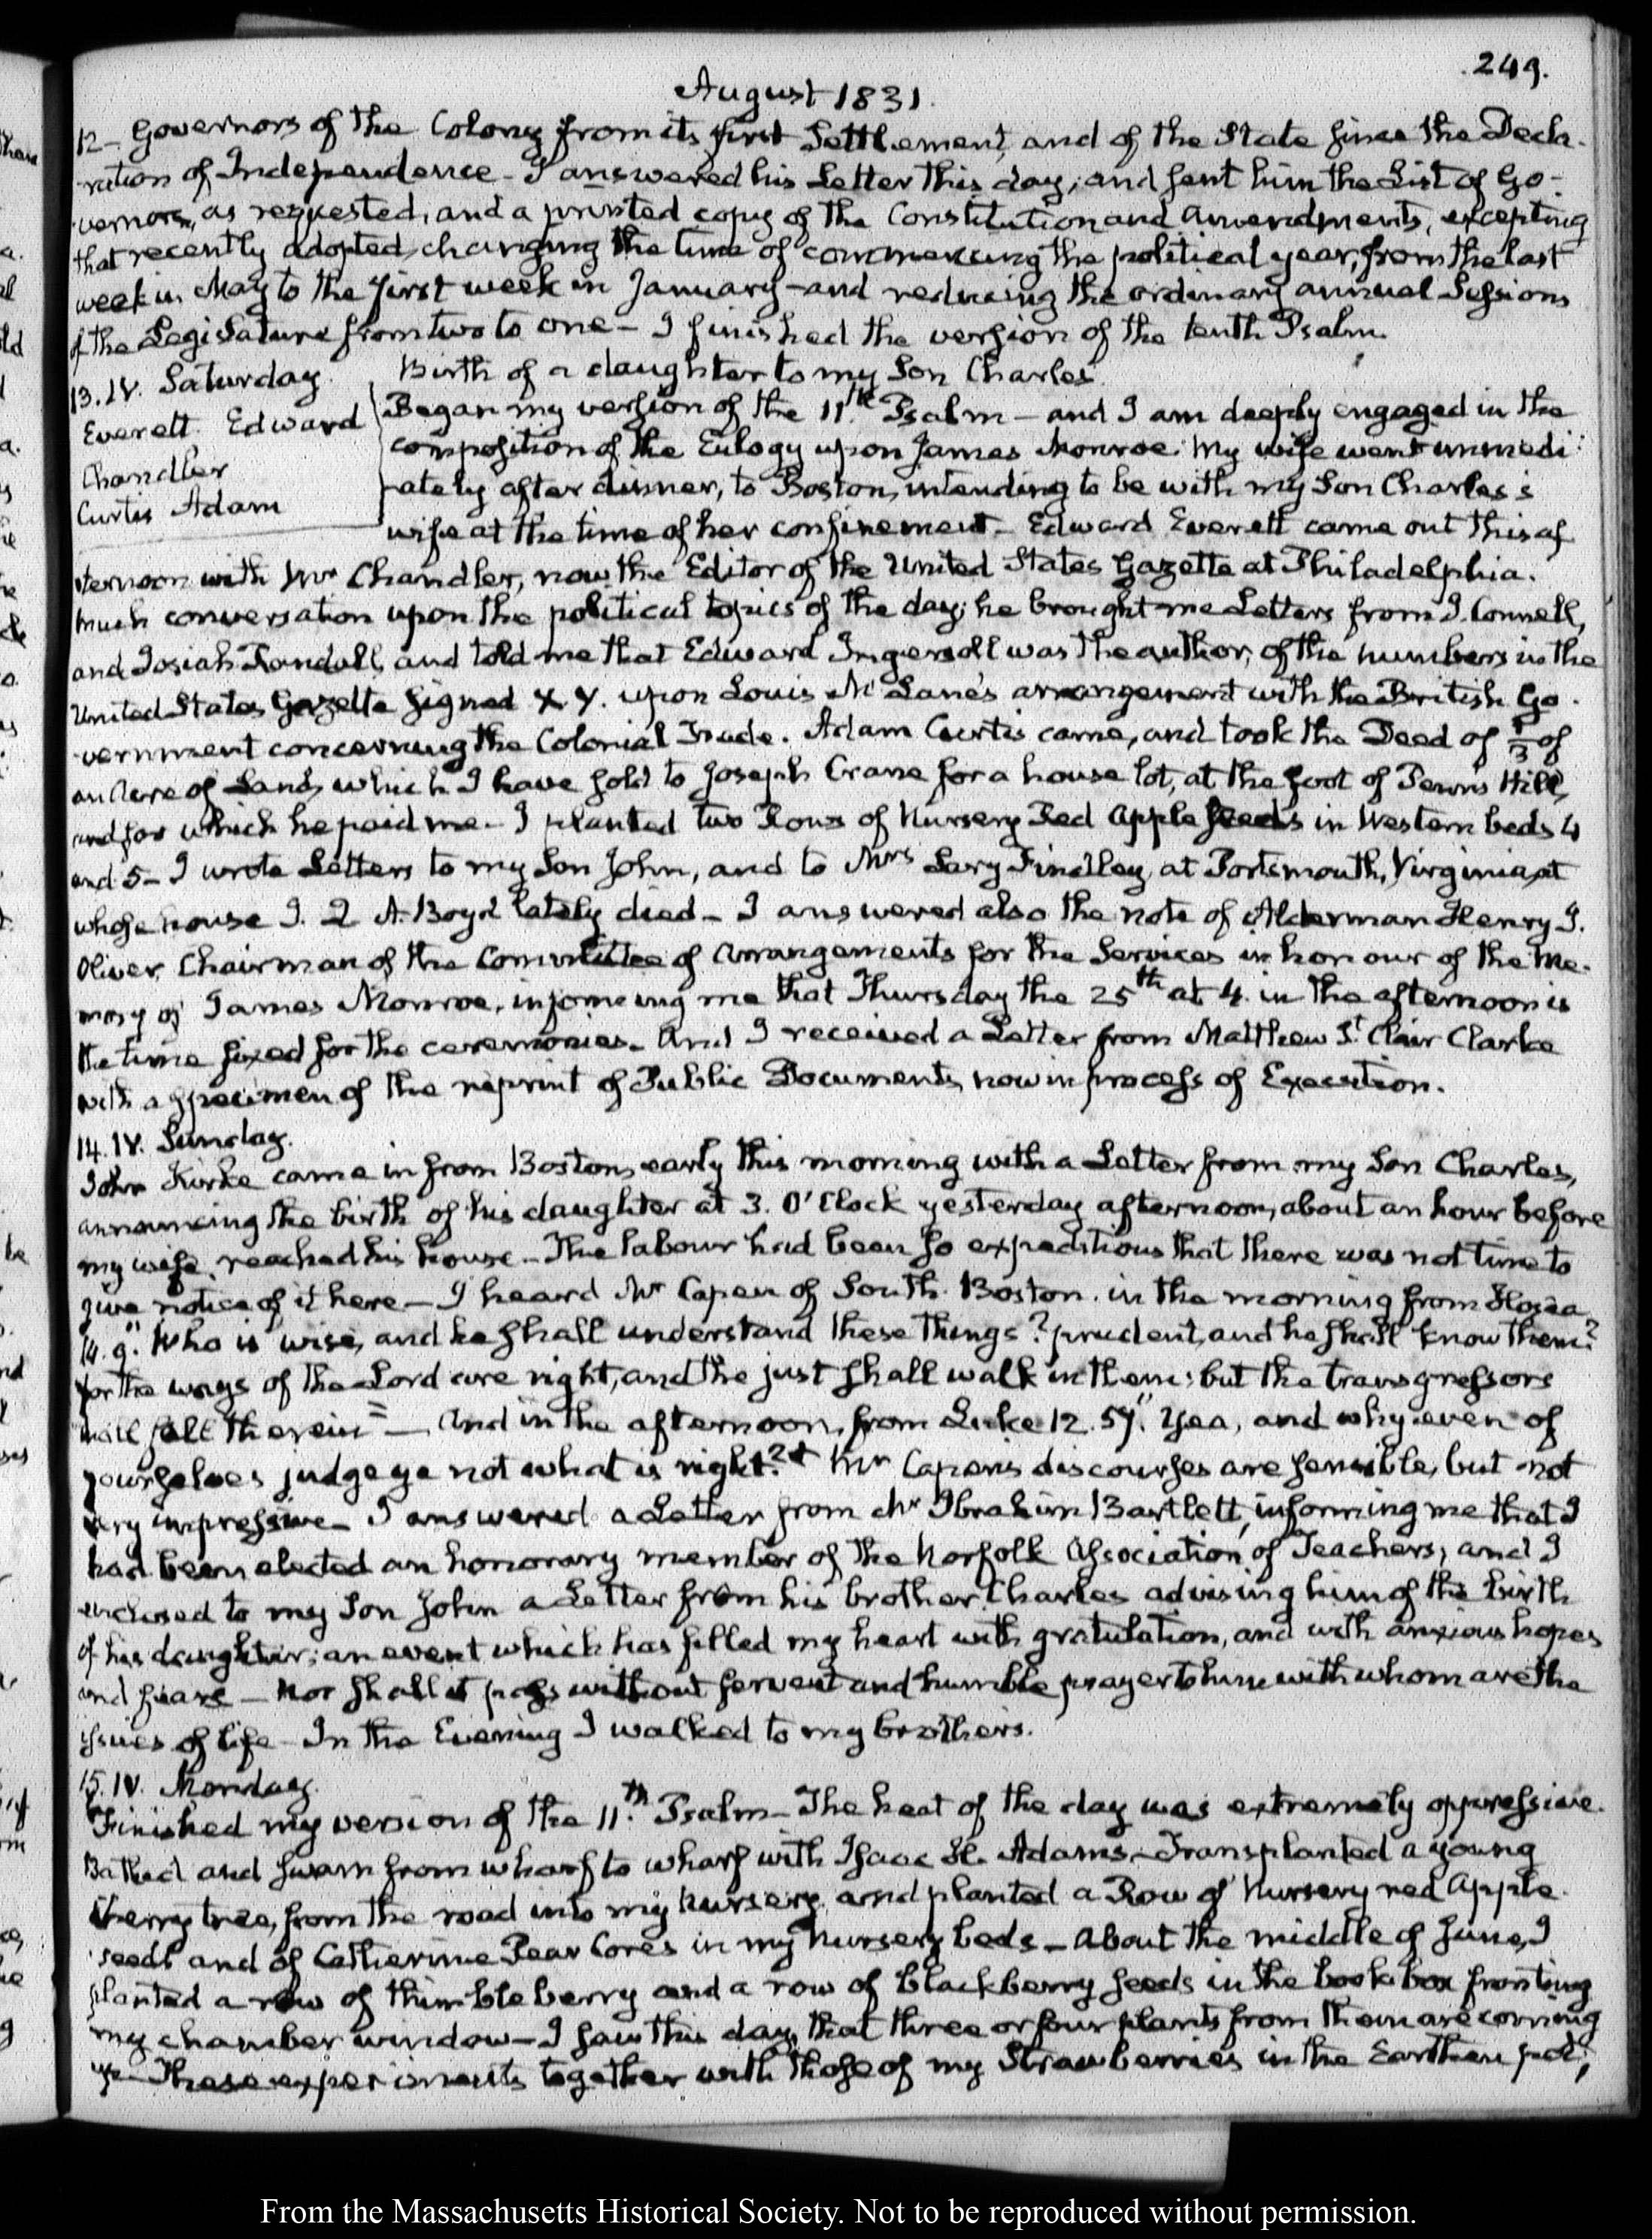 249.
August 1831.
12— Governors of the Colony from its first Settlement, and of the State since the Decla-
ration of Independence— I answered his Letter this day, and sent him the List of Go-
vernors, as requested, and a printed copy of the Constitution and Amendments, excepting
that recently adopted, changing the time of commencing the political year, from the last
week in May to the first week in January—and reducing the ordinary annual Sessions
of the Legislature from two to one— I finished the version of the tenth Psalm.
13. IV. Saturday. Birth of a daughter to my Son Charles.
Everett Edward
Chandler
Curtis Adam
Began my version of the 11th Psalm—and I am deeply engaged in the
composition of the Eulogy upon James Monroe. My wife went immedi-
ately after dinner, to Boston, intending to be with my Son Charles's
wife at the time of her confinement— Edward Everett came out this af
ternoon with Mr Chandler, now the Editor of the United States Gazette at Philadelphia.
Much conversation upon the political topics of the day; he brought me Letters from J. Connell,
and Josiah Randall, and told me that Edward Ingersoll was the author, of the numbers in the
United States Gazette signed X. Y. upon Louis McLane's arrangement with the British Go-
vernment concerning the Colonial Trade. Adam Curtis came, and took the Deed of 1/3 of
an Acre of Land, which I have sold to Joseph Crane for a house lot, at the foot of Penn's Hill,
and for which he paid me— I planted two Rows of Nursery Red Apple seeds in Western beds 4
and 5— I wrote Letters to my Son John, and to Mrs Lacy Findley, at Portsmouth, Virginia, at
whose house J. Q A. Boyd lately died— I answered also the note of Alderman Henry J.
Oliver, Chairman of the Committee of Arrangements for the Services in honour of the Me-
mory of James Monroe, informing me that Thursday the 25th at 4. in the afternoon is
the time fixed for the ceremonies— And I received a Letter from Matthew St Clair Clarke
with a specimen of the reprint of Public Documents, now in process of Execution.
14. IV. Sunday.
John Kirke came in from Boston, early this morning with a Letter from my Son Charles,
announcing the birth of his daughter at 3. O'Clock yesterday afternoon, about an hour before
my wife, reached his house— The labour had been so expeditious that there was not time to
give notice of it here— I heard Mr Capen of South Boston. in the morning from Hosea
14. 9. "Who is wise, and he shall understand these things? prudent, and he shall know them?
for the ways of the Lord are right, and the just shall walk in them: but the transgressors
shall fall therein"— And in the afternoon, from Luke 12. 57. "Yea, and why even of
yourselves judge ye not what is right?" Mr Capen's discourses are sensible, but not
very impressive— I answered a Letter from Mr Ibrahim Bartlett, informing me that I
had been elected an honorary member of the Norfolk Association of Teachers; and I
enclosed to my Son John a Letter from his brother Charles advising him of the birth
of his daughter; an event which has filled my heart with gratulation, and with anxious hopes
and fears— Nor shall it pass without fervent and humble prayer to him with whom are the
issues of life— In the Evening I walked to my brother's.
15. IV. Monday.
Finished my version of the 11th Psalm— The heat of the day was extremely oppressive.
Bathed and swam from wharf to wharf with Isaac H. Adams— Transplanted a young
Cherry tree, from the road into my Nursery, and planted a Row of Nursery red Apple
seeds and of Catherine Pear Cores in my Nursery beds— About the middle of June, I
planted a row of thimbleberry and a row of blackberry seeds in the book box fronting
my chamber window— I saw this day, that three or four plants from them are coming
up— These experiments together with those of my Strawberries in the Earthen pot;
From the Massachusetts Historical Society. Not to be reproduced without permission.